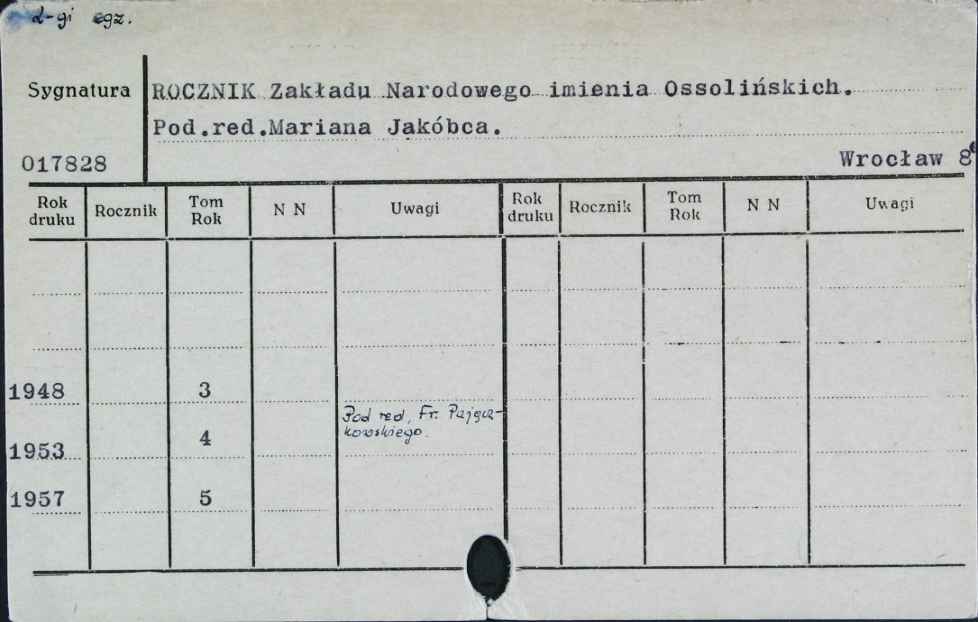 2-gi egz.
Sygnatura
ROCZNIK Zakładu Narodowego imienia Ossolińskich.
Pod.red.Mariana Jakóbca.
017828
Wrocław 8°
Rok druku Rocznik Tom Rok N N Uwagi Rok druku Rocznik Tom Rok N N Uwagi
1948 3
Pod red. Fr. Pającz-
kowskiego.
1953 4
1957 5